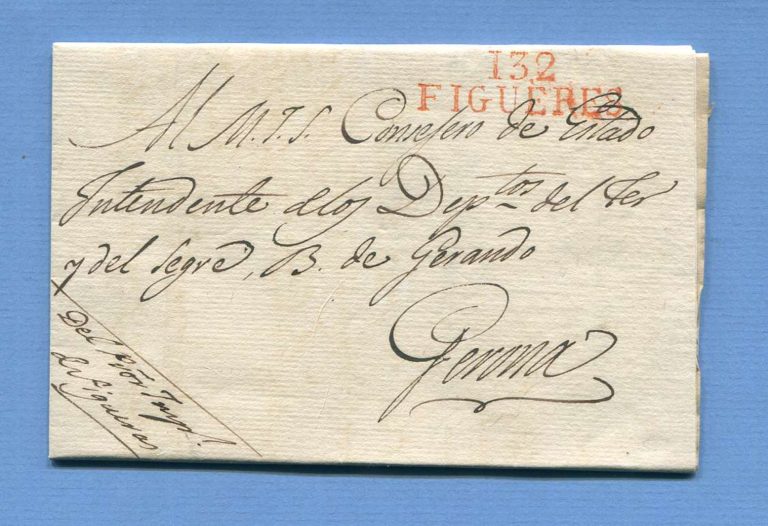 132
FIGUÈRES
Al M. I. S. Consejero de Estado
Intendente de los Dep.tos del Ter
y del Segre, B. de Gerando
Gerona
Del
de Figueras